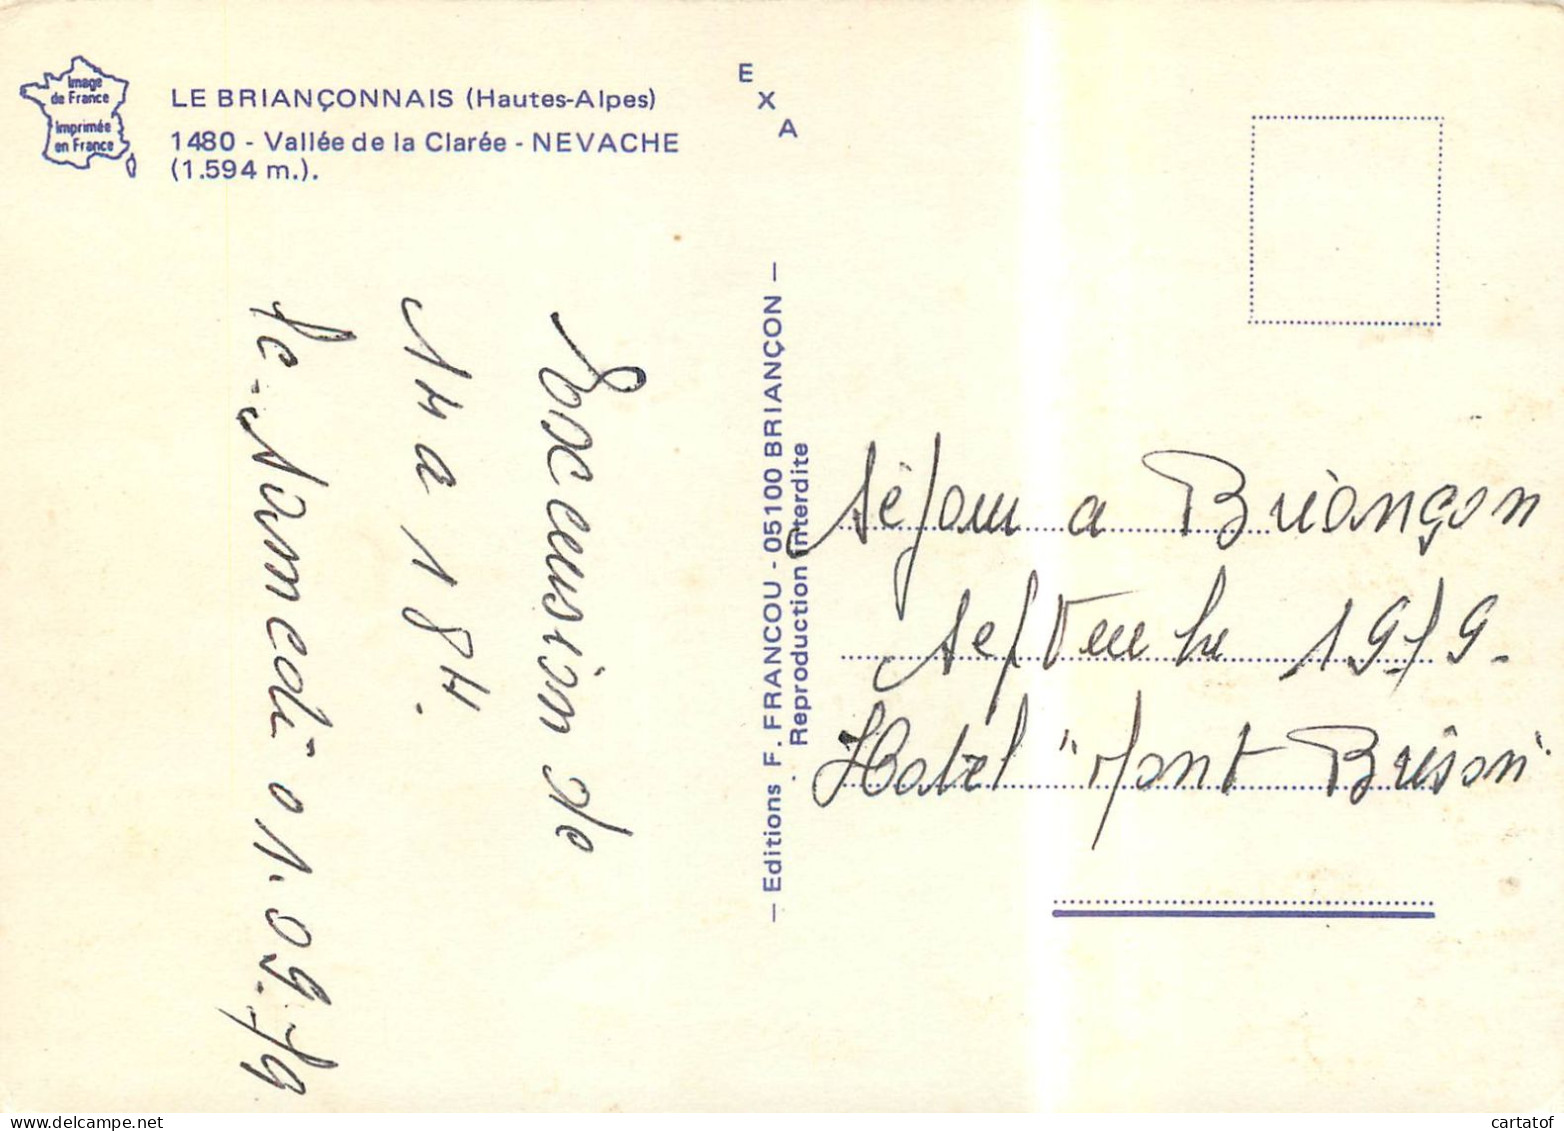 Image
de France
Imprimée
en France
LE BRIANÇONNAIS (Hautes-Alpes)
1480 - Vallée de la Clarée - NEVACHE
(1.594 m.).
E
X
A
Excursion de
14 a 18H.
le Samedi 01.09.79
— Editions F. FRANCOU - 05100 BRIANÇON —
Reproduction Interdite
Séjour a Briançon
Septembre 1979.
Hotel "Mont Brison"
cartatof